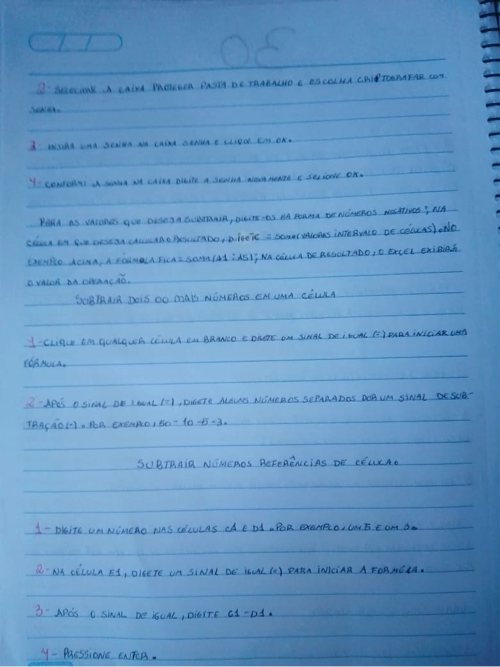 2- SELECIONE A CAIXA PROTEGER PASTA DE TRABALHO E ESCOLHA CRIPTOGRAFAR COM
SENHA.
3- INSIRA UMA SENHA NA CAIXA SENHA E CLIQUE EM OK.
4- CONFIRME A SENHA NA CAIXA DIGITE A SENHA NOVAMENTE E SELIONE OK.
PARA AS VALORES QUE DESEJA SUBTRAIR, DIGITE-OS NA FORMA DE NÚMEROS NEGATIVOS; NA
CÉLULA EM QUE DESEJA CALCULAR O RESULTADO, DIGITE = SOMA(VALORES INTERVALO DE CÉLULAS). NO
EXEMPLO ACIMA, A FÓRMULA FICA = SOMA(A1:A5); NA CÉLULA DE RESULTADO, O EXCEL EXIBIRÁ
O VALOR DA OPERAÇÃO.
SUBTRAIR DOIS OU MAIS NÚMEROS EM UMA CÉLULA
1- CLIQUE EM QUALQUER CÉLULA EM BRANCO E DIGETE UM SINAL DE IGUAL (=) PARA INICIAR UMA
FÓRMULA.
2- APÓS O SINAL DE IGUAL (=), DIGETE ALGUNS NÚMEROS SEPARADOS POR UM SINAL DE SUB-
TRAÇÃO (-). POR EXEMPLO, 50-10-5-3.
SUBTRAIR NÚMEROS REFERÊNCIAS DE CÉLULA.
1- DIGITE UM NÚMERO NAS CÉLULAS C1 E D1. POR EXEMPLO, UM 5 E OM 3.
2- NA CÉLULA E1, DIGETE UM SINAL DE IGUAL (=) PARA INICIAR A FORMULA.
3- APÓS O SINAL DE IGUAL, DIGITE C1-D1.
4- PRESSIONE ENTER.